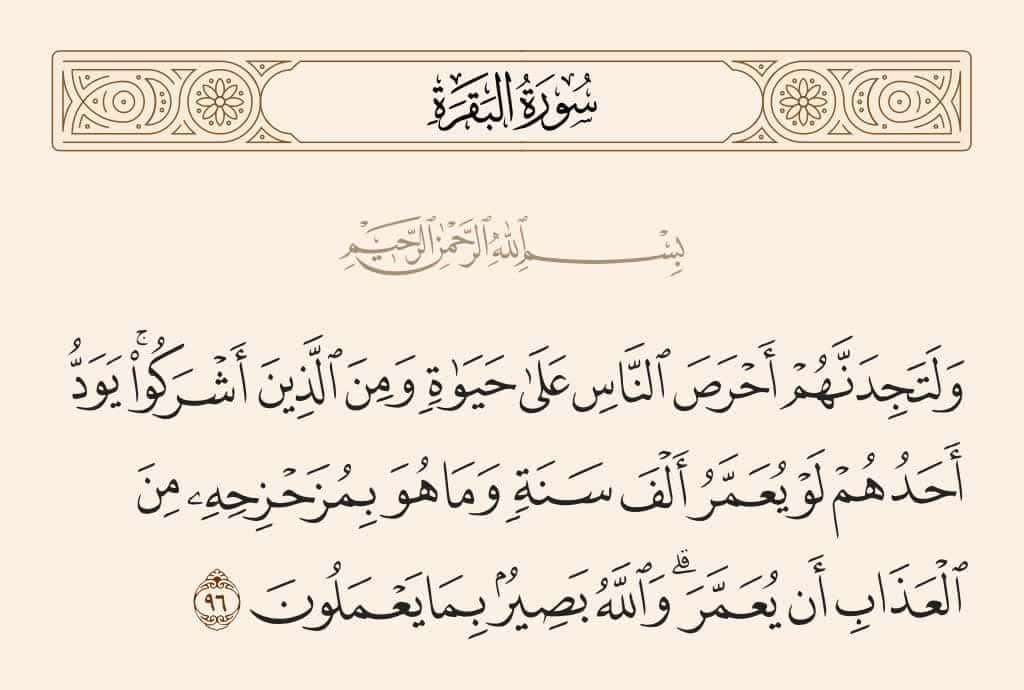 سُورَةُ البَقَرَةِ
بِسْمِ ٱللَّهِ ٱلرَّحْمَٰنِ ٱلرَّحِيمِ
وَلَتَجِدَنَّهُمْ أَحْرَصَ ٱلنَّاسِ عَلَىٰ حَيَوٰةٍ وَمِنَ ٱلَّذِينَ أَشْرَكُوا۟ ۚ يَوَدُّ
أَحَدُهُمْ لَوْ يُعَمَّرُ أَلْفَ سَنَةٍ وَمَا هُوَ بِمُزَحْزِحِهِۦ مِنَ
ٱلْعَذَابِ أَن يُعَمَّرَ ۗ وَٱللَّهُ بَصِيرٌۢ بِمَا يَعْمَلُونَ ٩٦